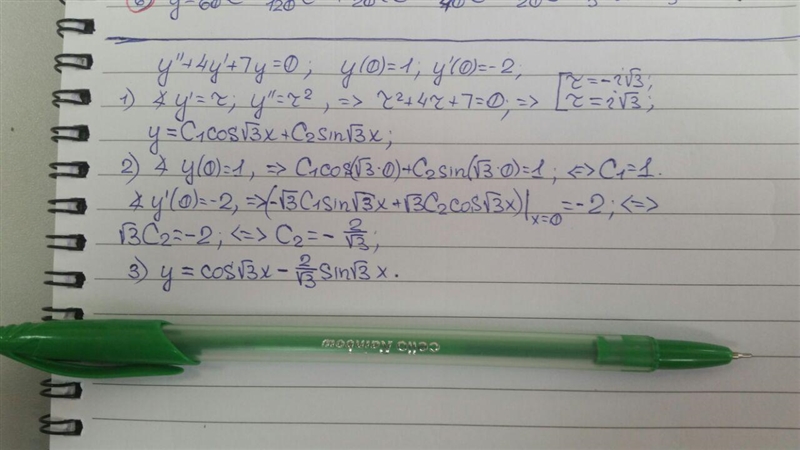 y''+4y'+7y=0; y(0)=1; y'(0)=-2;
1) ∢ y'=τ; y''=τ², => τ²+4τ+7=0; => [τ=-i√3; τ=i√3;
y=C₁cos√3x+C₂sin√3x;
2) ∢ y(0)=1, => C₁cos(√3·0)+C₂sin(√3·0)=1; <=> C₁=1.
∢ y'(0)=-2, =>(-√3C₁sin√3x+√3C₂cos√3x)|ₓ₌₀=-2; <=>
√3C₂=-2; <=> C₂=-2/√3;
3) y=cos√3x-2/√3sin√3x.
cello Rainbow